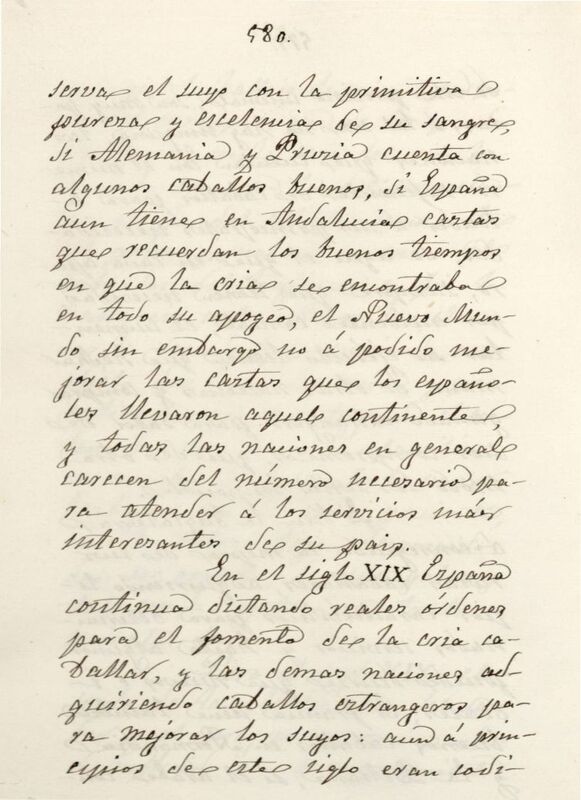 580.
serva el suyo con la primitiva
pureza y escelencia de su sangre,
si Alemania y Prusia cuenta con
algunos caballos buenos, si España
aun tiene en Andalucia castas
que recuerdan los buenos tiempos
en que la cria se encontraba
en todo su apogeo, el Nuevo Mun-
do sin embargo no á podido me-
jorar las castas que los españo-
les llevaron aquel continente,
y todas las naciones en general
carecen del número necesario pa-
ra atender á los servicios más
interesantes de su pais.
En el siglo XIX España
continua dictando reales órdenes
para el fomento de la cria ca-
ballar, y las demas naciones ad-
quiriendo caballos estrangeros pa-
ra mejorar los suyos: aun á prin-
cipios de este siglo eran codi-